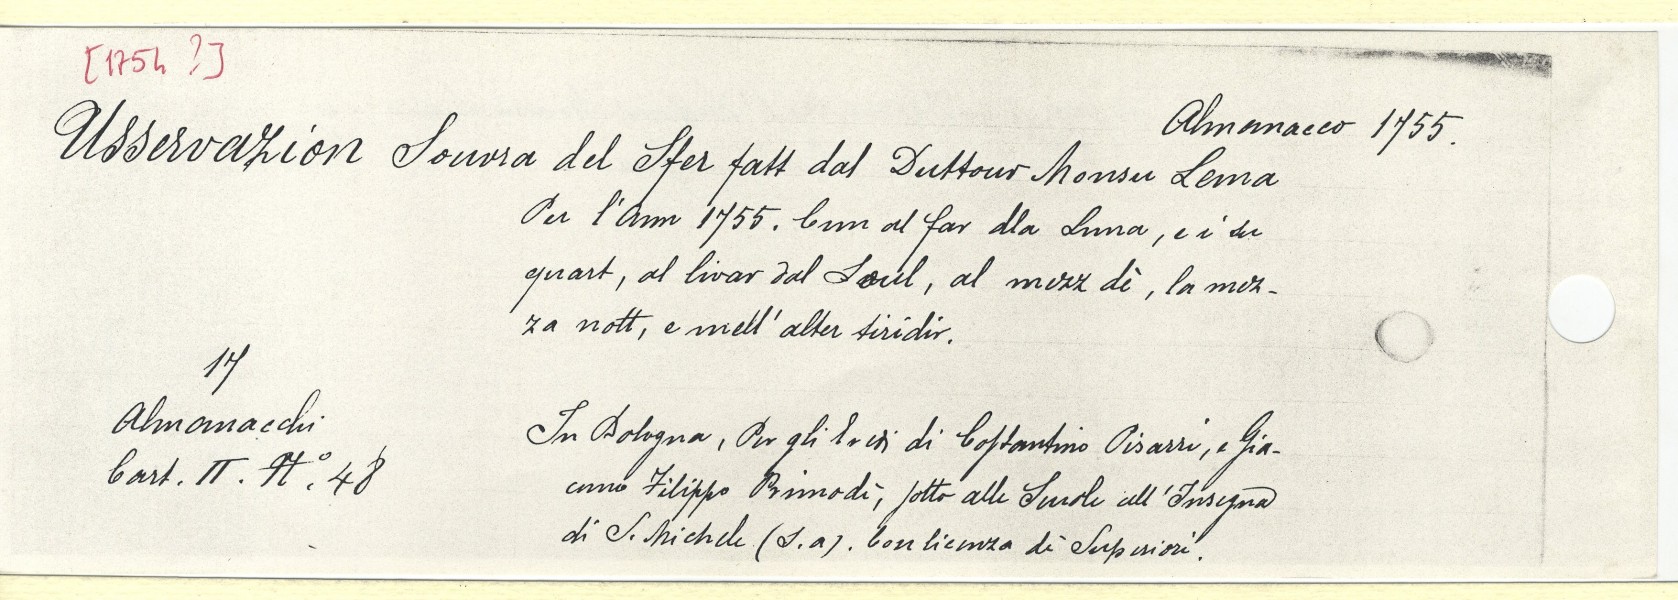 [1754 ?]
Almanacco 1755.
Usservazion Souvra del Sfer fatt dal Duttour Monsu Lema
Per l'Ann 1755. Cun al far dla Luna, e i su
quart, al livar dal Soul, al mezz dè, la mez-
za nott, e mell' alter tiridir.
17
Almanacchi
Cart. II. N.° 48
In Bologna, Per gli Eredi di Costantino Pisarri, e Gia-
como Filippo Primodì, sotto alle Scuole all' Insegna
di S. Michele (s.a). Con licenza de Superiori.